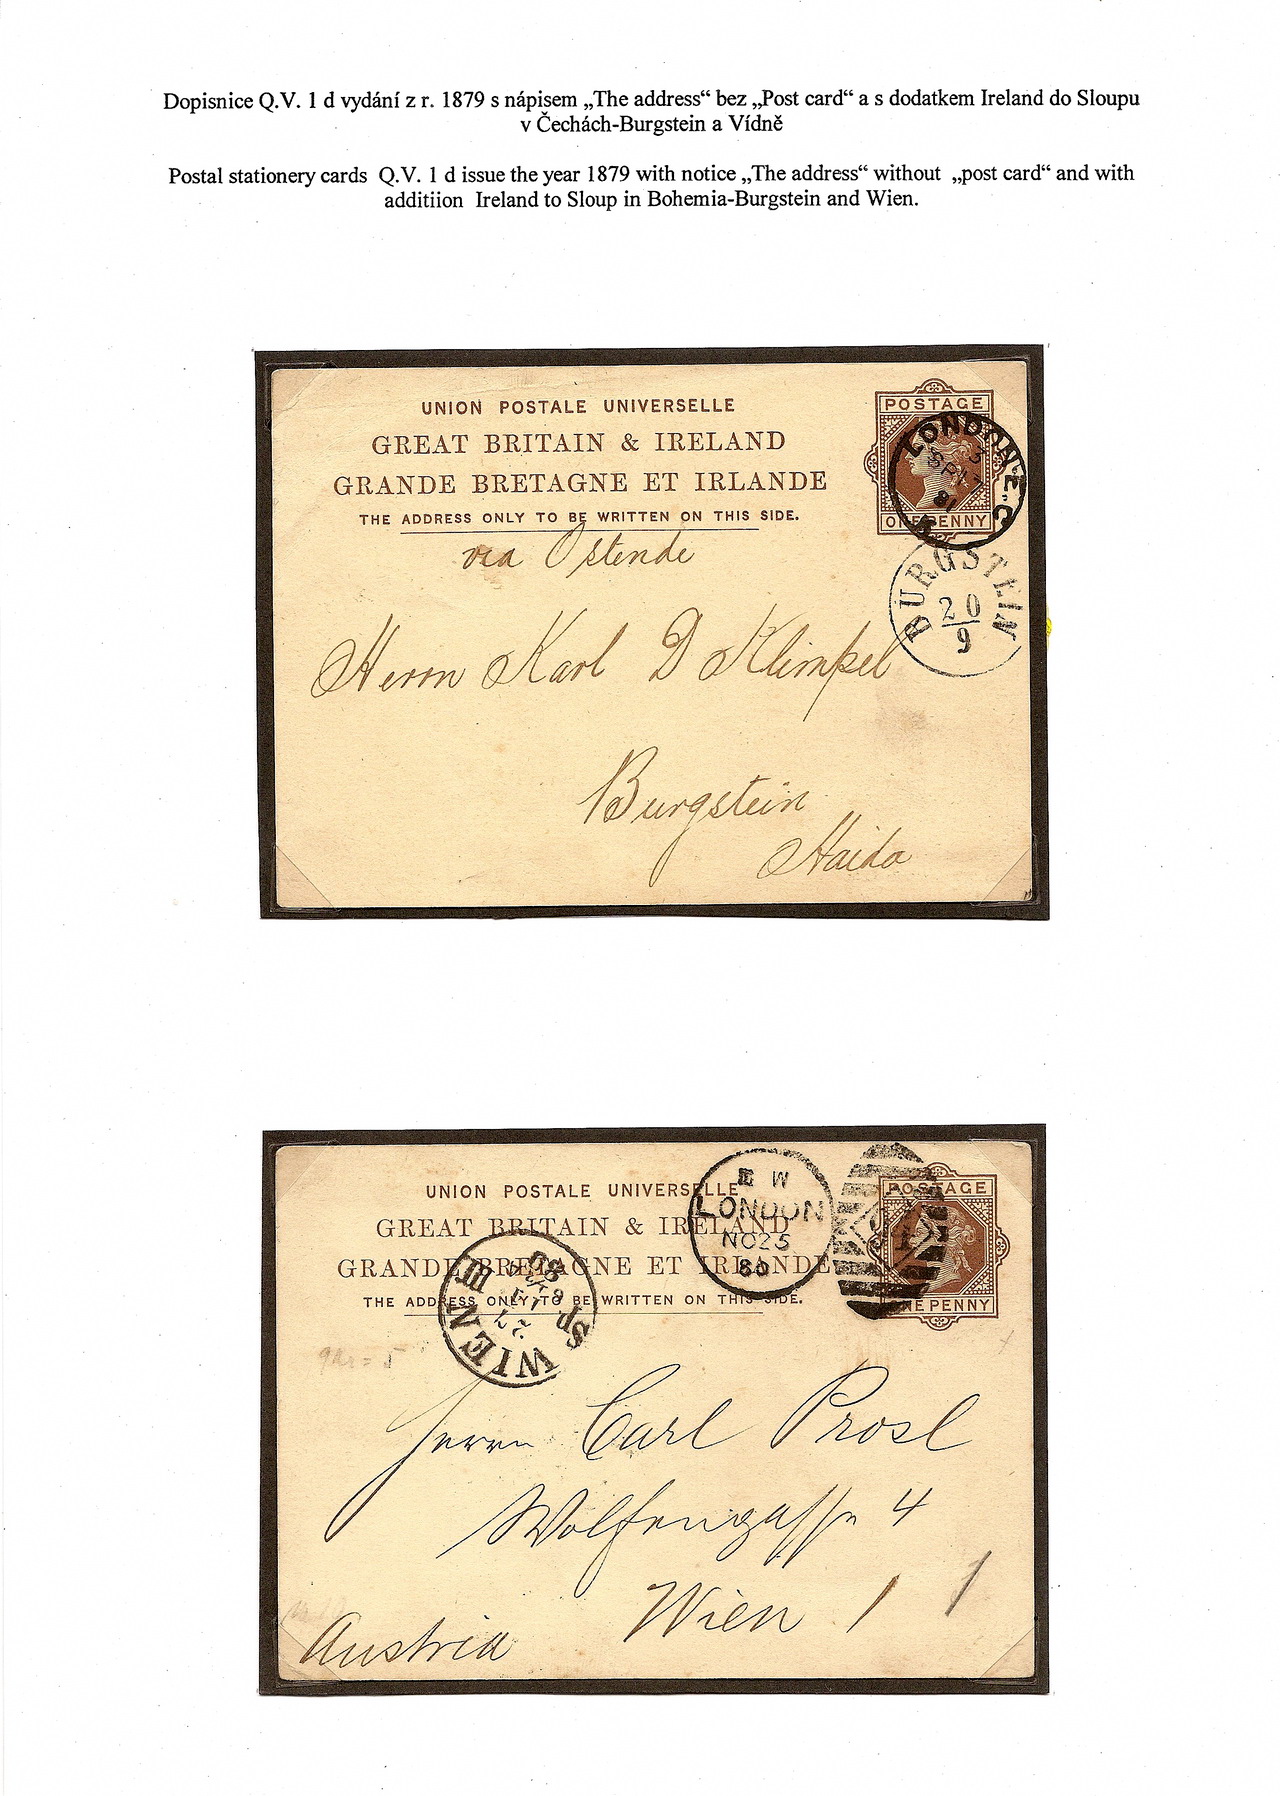 Dopisnice Q.V. 1 d vydání z r. 1879 s nápisem „The address“ bez „Post card“ a s dodatkem Ireland do Sloupu
v Čechách-Burgstein a Vídně
Postal stationery cards Q.V. 1 d issue the year 1879 with notice „The address“ without „post card“ and with
additiion Ireland to Sloup in Bohemia-Burgstein and Wien.
UNION POSTALE UNIVERSELLE
GREAT BRITAIN & IRELAND
GRANDE BRETAGNE ET IRLANDE
THE ADDRESS ONLY TO BE WRITTEN ON THIS SIDE.
POSTAGE
ONE PENNY
LONDON E.C
81
BURGSTEIN
20
9
via Ostende
Herrn Karl D Klimpel
Burgstein
Haida
UNION POSTALE UNIVERSELLE
GREAT BRITAIN & IRELAND
GRANDE BRETAGNE ET IRLANDE
THE ADDRESS ONLY TO BE WRITTEN ON THIS SIDE.
POSTAGE
ONE PENNY
E W
LONDON
NO 25
80
WIEN
27
80
Herrn Carl Prosl
Wolfengasse 4
Wien 1 1
Austria